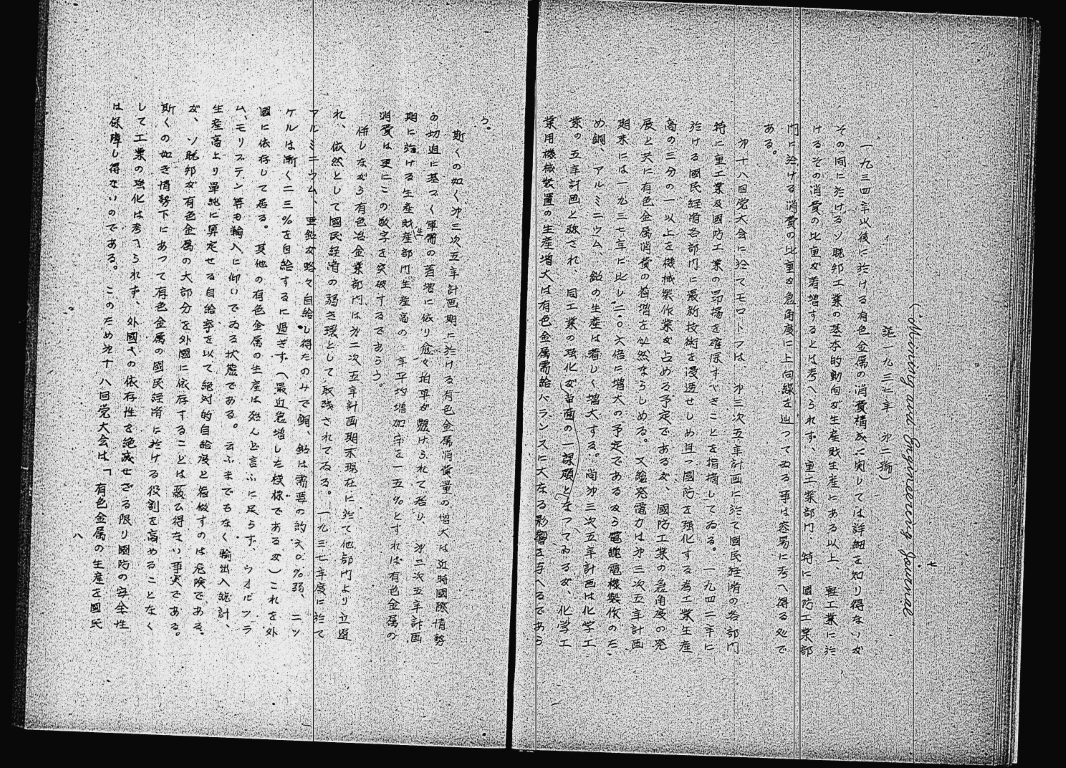 (Mining and Engineering Journal
誌一九三七年 第二号)
一九三四年以後に於ける有色金属の消費構成に関しては詳細を知り得ないが
その間に於けるソ聯邦工業の基本的動向が生産財生産にある以上、軽工業に於
けるその消費の比重が著増するとは考へられず、重工業部門、特に国防工業部
門に於ける消費の比重が急角度に上向線を辿つてゐる事は容易に考へ得る処で
ある。
第十八回党大会に於てモロトフは、第三次五年計画に於て國民経済の各部門
特に重工業及國防工業の昂揚を確保すべきことを指摘してゐる。一九四二年に
於ける國民経済各部門に最新技術を浸透せしめ且つ國防を強化する為工業生産
高の三分の一以上を機械製作業が占める予定であるが、國防工業の急角度の発
展と共に有色金属消費の著増を必然ならしめる。又総発電力は第三次五年計画
期末には一九三七年に比し二・〇六倍に増大の予定であるから電機製作のた
め銅、アルミニウム、鉛の生産は著しく増大する。尚第三次五年計画は化学工
業の五年計画と称され、同工業の強化が当面の一課題となつてゐるが、化学工
業用機械装置の生産増大は有色金属需給バランスに大なる影響を与へるであら
う。
斯くの如く第三次五年計画期に於ける有色金属消費量の増大は近時國際情勢
の切迫に基づく軍需の著増に依り愈々拍車が懸けられて居り、第三次五年計画
期に於ける生産財生産部門生産高の年平均増加率を一五%とすれば有色金属の
消費は更にこの数字を突破するであらう。
併しながら有色冶金業部門は第二次五年計画期末現在に於て他部門より立遅
れ、依然として國民経済の弱き環として取残されてゐる。一九三七年度に於て
アルミニウム、亜鉛が略々自給し得たのみで銅、鉛は需要の約六〇%弱、ニッ
ケルは漸く二三%を自給するに過ぎず(最近急増した模様であるが)これを外
國に依存して居る。其他の有色金属の生産は殆んど言ふに足らず、ウオルフラ
ム、モリブデン等も輸入に仰いでゐる状態である。云ふまでもなく輸出入統計、
生産高より単純に算定せる自給率を以て絶対的自給度と看做すのは危険である
が、ソ聯邦が有色金属の大部分を外國に依存することは蔽ひ得ない事実である。
斯くの如き情勢下にあつて有色金属の國民経済に於ける役割を高めることなく
して工業の強化は考へられず、外國への依存性を絶滅せざる限り國防の安全性
は保障し得ないのである。このため第十八回党大会は「有色金属の生産を國民
八